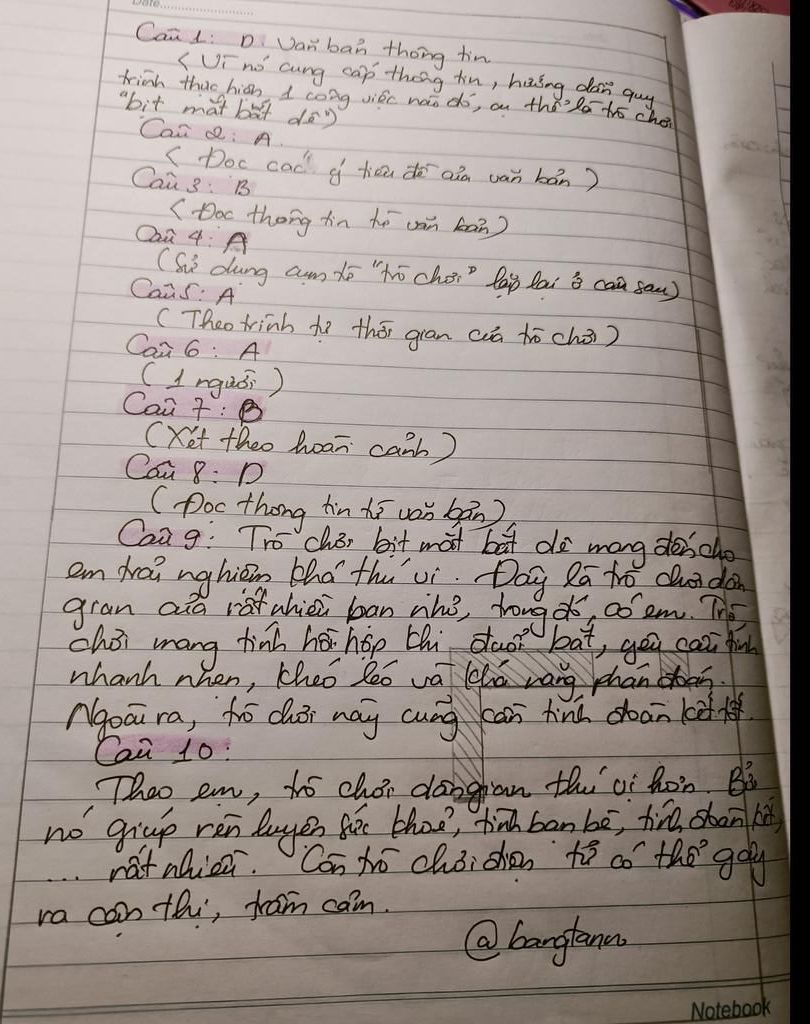 Date
Câu 1: D. Văn bản thông tin
( Vì nó cung cấp thông tin, hướng dẫn quy
trình thực hiện 1 công việc nào đó, cụ thể là trò chơi
"bịt mắt bắt dê")
Câu 2: A.
( Đọc các ý tiêu đề của văn bản )
Câu 3: B
( Đọc thông tin từ văn bản)
Câu 4: A
(Sử dụng cụm từ "trò chơi" lặp lại ở câu sau)
Câu 5: A
( Theo trình tự thời gian của trò chơi )
Câu 6: A
( 1 người )
Câu 7: B
(Xét theo hoàn cảnh)
Câu 8: D
( Đọc thông tin từ văn bản)
Câu 9: Trò chơi bịt mắt bắt dê mang đến cho
em trải nghiệm khá thú vị. Đây là trò chơi dân
gian của rất nhiều bạn nhỏ, trong đó, có em. Trò
chơi mang tính hồi hộp khi đuổi bắt, yêu cầu tính
nhanh nhẹn, khéo léo và khả năng phán đoán.
Ngoài ra, trò chơi này cũng cần tính đoàn kết tốt.
Câu 10:
Theo em, trò chơi dân gian thú vị hơn. Bởi
nó giúp rèn luyện sức khoẻ, tình bạn bè, tính đoàn kết,
... rất nhiều. Còn trò chơi điện tử có thể gây
ra cận thị, trầm cảm.
@bangtann
Notebook